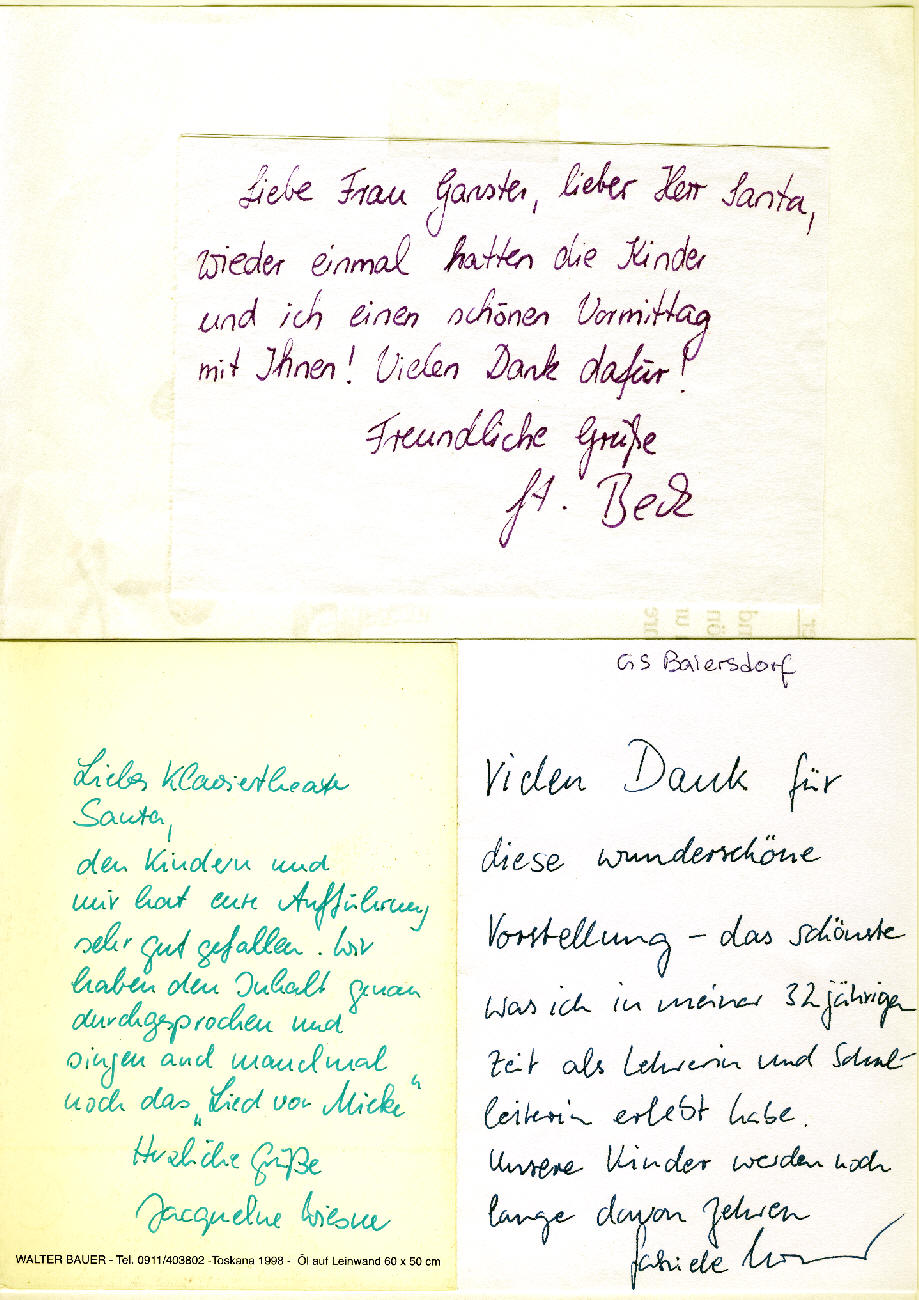 Liebe Frau Ganster, lieber Herr Santa,
wieder einmal hatten die Kinder
und ich einen schönen Vormittag
mit Ihnen! Vielen Dank dafür!
Freundliche Grüße
St. Beck
Liebes Klaviertheater
Santa,
den Kindern und
mir hat eure Aufführung
sehr gut gefallen. Wir
haben den Inhalt genau
durchgesprochen und
singen auch manchmal
noch das „Lied von Micke“
Herzliche Grüße
Jacqueline
WALTER BAUER - Tel. 0911/403802 -Toskana 1998 - Öl auf Leinwand 60 x 50 cm
GS Baiersdorf
Vielen Dank für
diese wunderschöne
Vorstellung – das schönste
was ich in meiner 32 jährigen
Zeit als Lehrerin und Schul-
leiterin erlebt habe.
Unsere Kinder werden noch
lange davon zehren
Gabriele